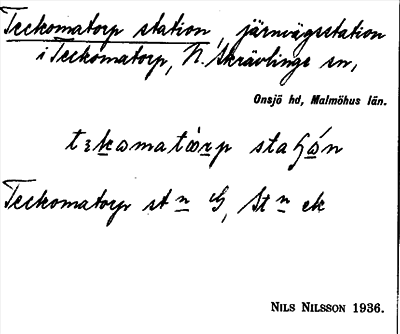 Teckomatorp station, järnvägsstation
i Teckomatorp, N. Skrävlinge sn,
Onsjö hd, Malmöhus län.
Teckomatorp st n G, St n ek
NILS NILSSON 1936.